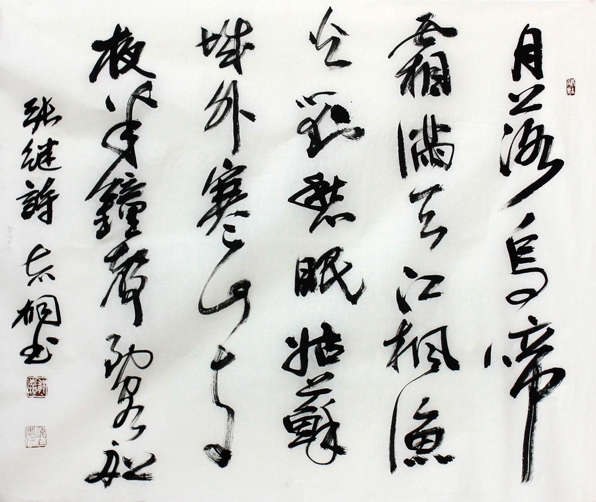 月落烏啼
霜滿天江楓漁
火對愁眠姑蘇
城外寒山寺
夜半鐘聲到客船
張继詩 志桐书